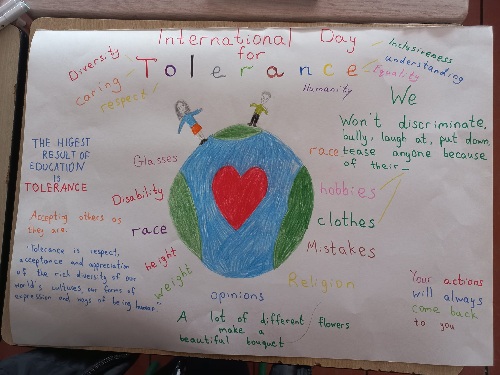 International Day
for
Tolerance
Diversity
caring
respect
Inclusiveness
understanding
Equality
Humanity
We
Won't discriminate,
bully, laugh at, put down,
tease anyone because
of their_
THE HIGEST
RESULT OF
EDUCATION
IS
TOLERANCE
Accepting others as
they are.
"Tolerance is respect,
acceptance and appreciation
of the rich diversity of our
world's cultures our forms of
expression and ways of being human."
Glasses
Disability
race
height
weight
opinions
Religion
race
hobbies
clothes
Mistakes
A lot of different flowers
make a
beautiful bouquet
Your actions
will always
come back
to you